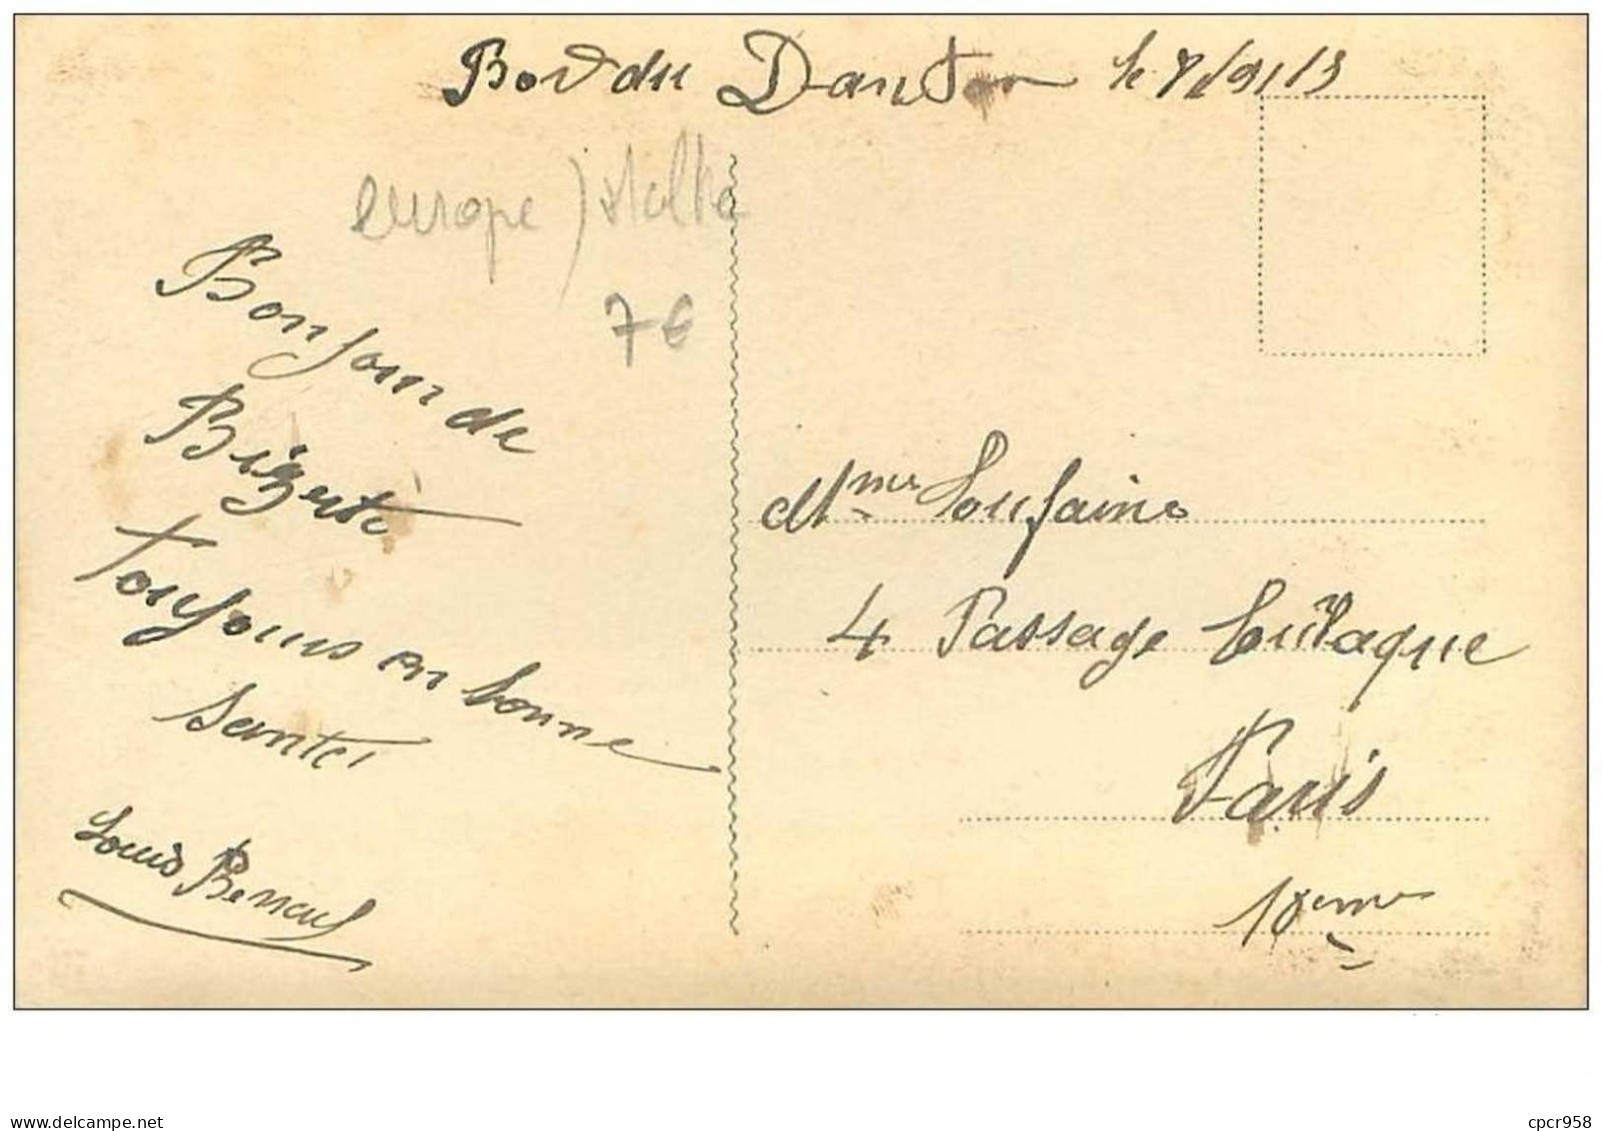 Bord du Danton le 7/9/13
europe) Malte
7€
Bonjour de
Bizerte
Toujours en bonne
Santé
Louis Renaul
Mme
4 Passage
Paris
18eme
delcampe.net
cpcr958